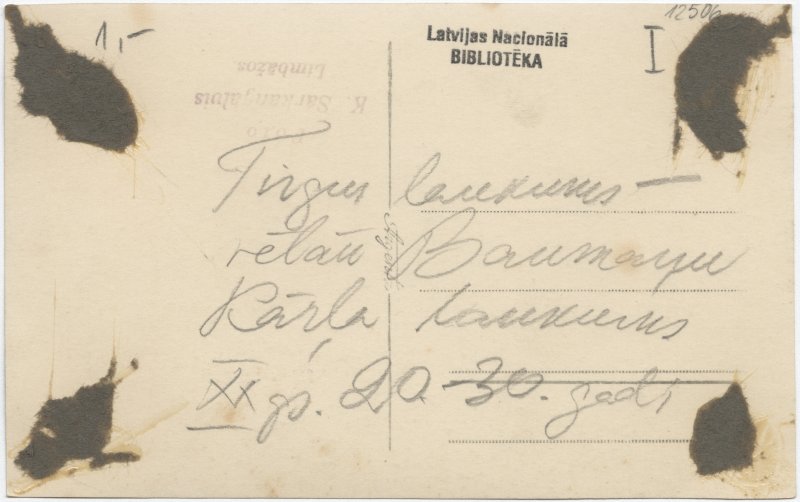 12506
1,-
Latvijas Nacionālā
BIBLIOTĒKA
I
Foto
K. Sarkangalvis
Limbažos
Tirgus laukums -
vēlāk Baumaņu
Kārļa laukums
XX gs. 20.-30. gadi